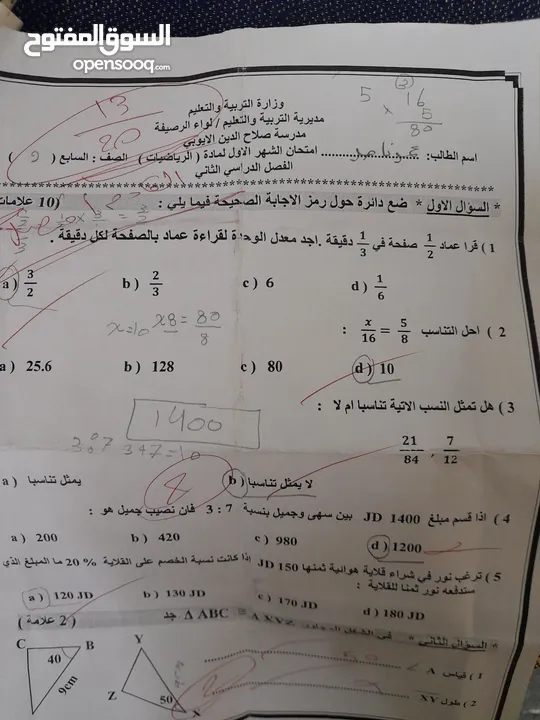 السوق المفتوح
opensooq.com
13
20
وزارة التربية والتعليم
مديرية التربية والتعليم / لواء الرصيفة
مدرسة صلاح الدين الايوبي
اسم الطالب: امتحان الشهر الاول لمادة ( الرياضيات ) الصف : السابع ( و )
الفصل الدراسي الثاني
5
16
× 5
80
* السؤال الاول * ضع دائرة حول رمز الاجابة الصحيحة فيما يلي : (10 علامات
1 ) قرأ عماد 1/2 صفحة في 1/3 دقيقة . اجد معدل الوحدة لقراءة عماد بالصفحة لكل دقيقة .
a ) 3/2 b ) 2/3 c ) 6 d ) 1/6
2 ) احل التناسب x/16 = 5/8 :
x=10 x8 = 80/8
a ) 25.6 b ) 128 c ) 80 d ) 10
3 ) هل تمثل النسب الاتية تناسبا ام لا :
21/84 , 7/12
1400
3:7 3+7=10
a ) يمثل تناسبا b ) لا يمثل تناسبا
4 ) اذا قسم مبلغ 1400 JD بين سهى وجميل بنسبة 7 : 3 فان نصيب جميل هو :
a ) 200 b ) 420 c ) 980 d ) 1200
5 ) ترغب نور في شراء قلاية هوائية ثمنها 150 JD اذا كانت نسبة الخصم على القلاية 20 % ما المبلغ الذي
ستدفعه نور ثمنا للقلاية :
a ) 120 JD b ) 130 JD c ) 170 JD d ) 180 JD
* السؤال الثاني * في الشكل المجاور Δ XYZ Δ ABC جد ( 2 علامة )
1 ) قياس A
2 ) طول XY
C B Y
40
9cm
Z 50 X